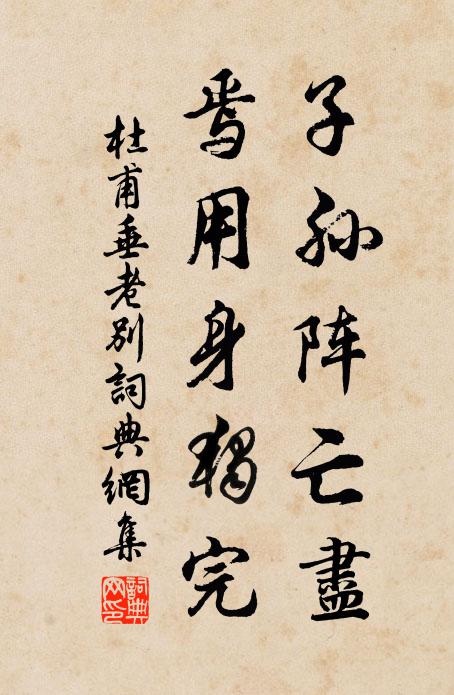 子孙阵亡盡
焉用身獨完
杜甫垂老別詞典網集
詞典
网印